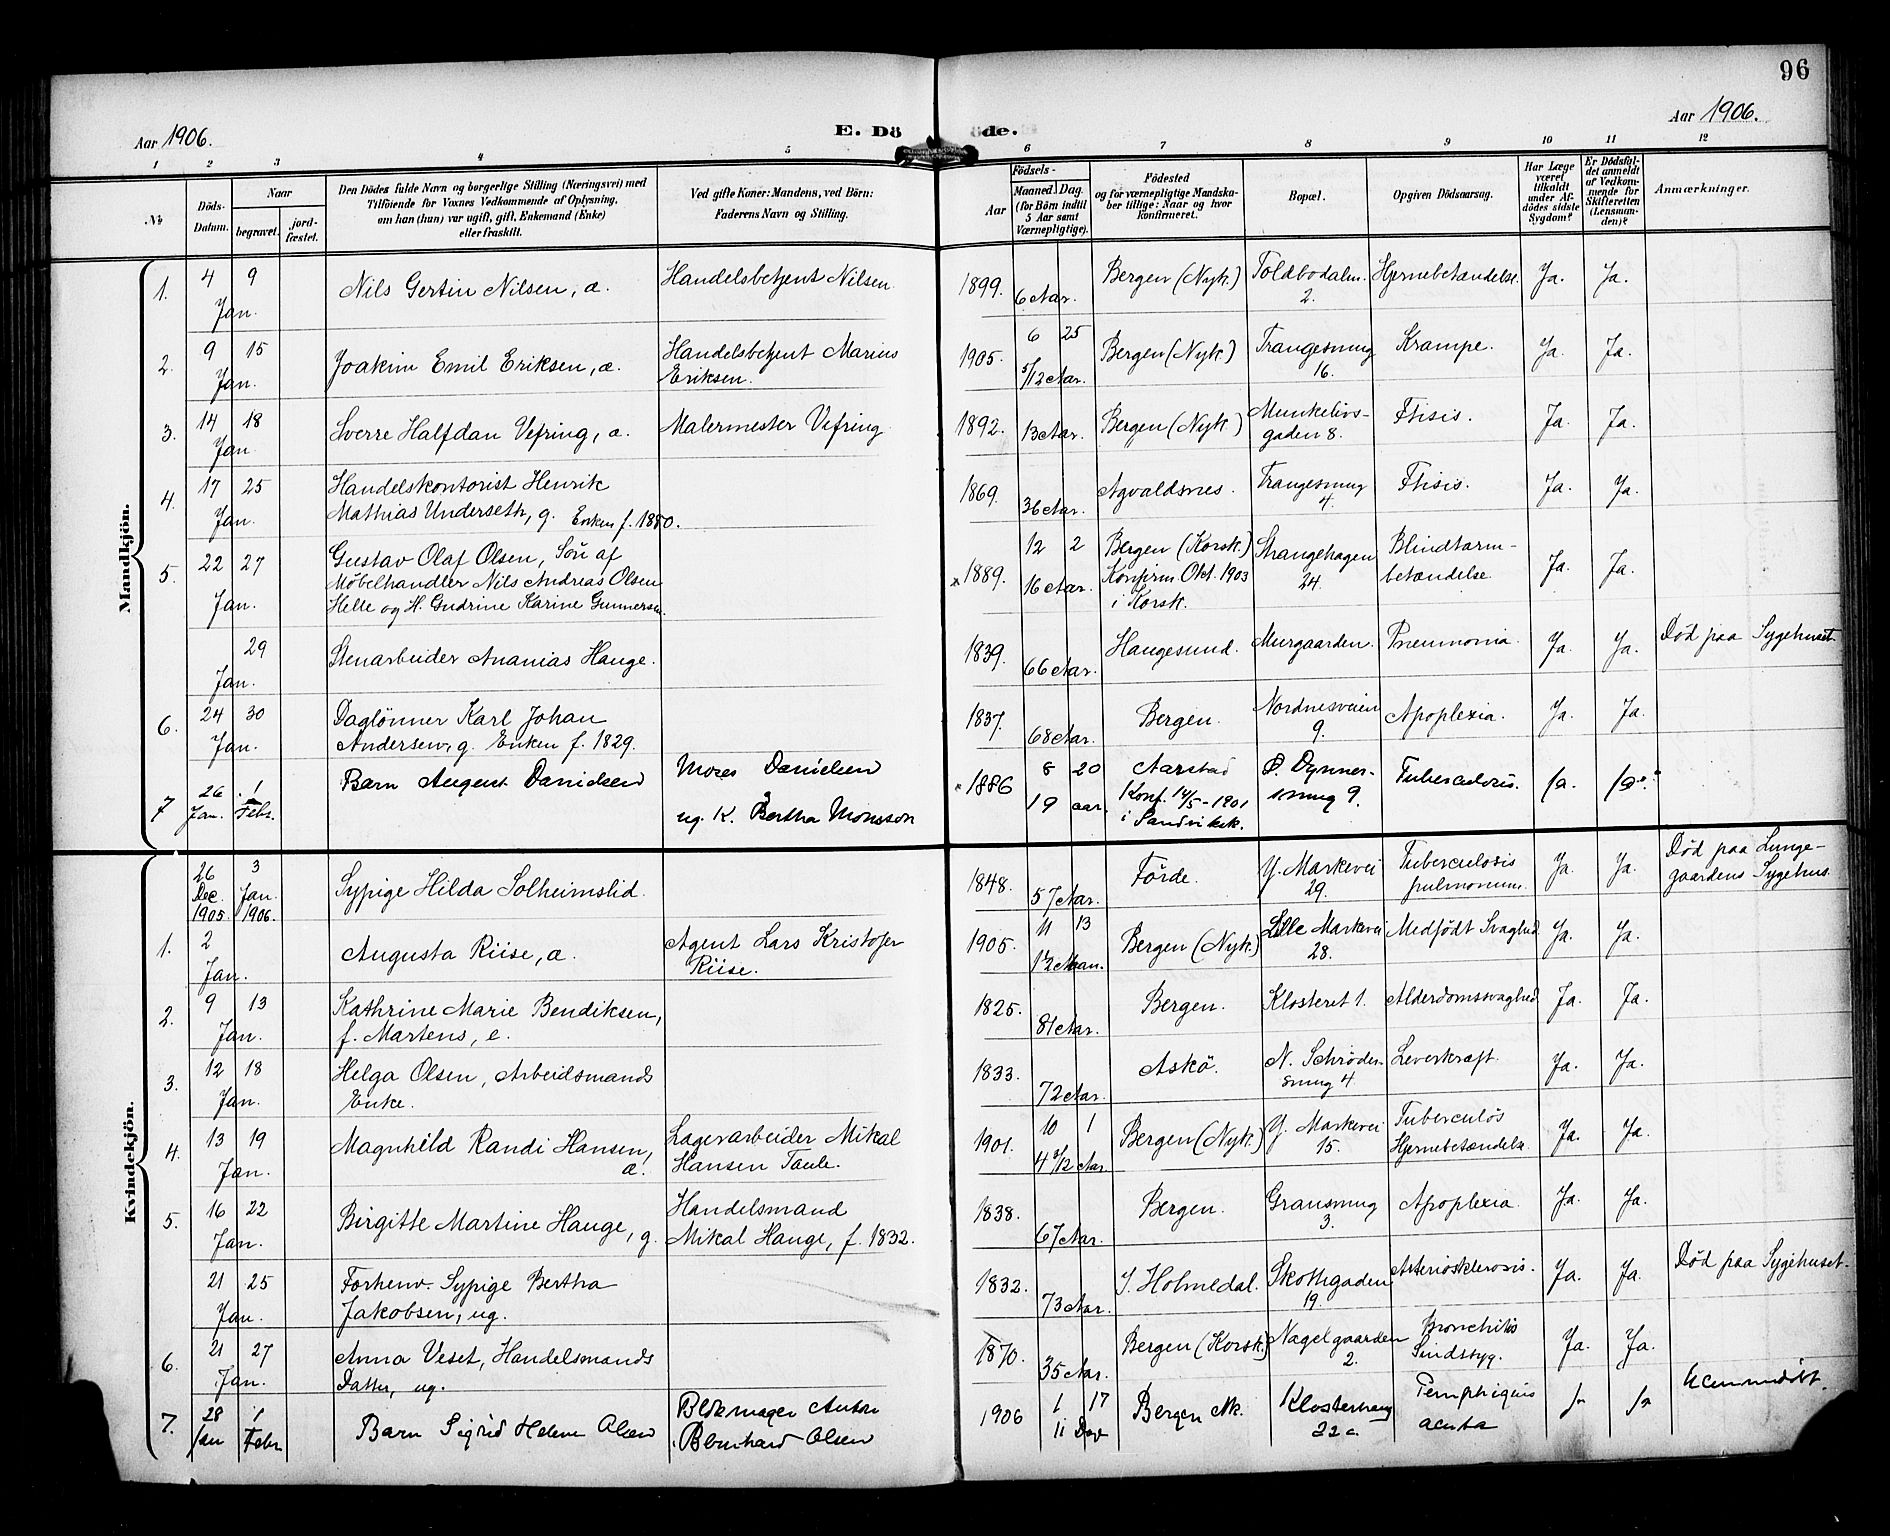 96
Aar 1906.
E. Döde.
Aar 1906.
1 2 3 4 5 6 7 8 9 10 11 12
No
Döds-Datum.
Naar
begravet.
jordfæstet.
Den Dödes fulde Navn og borgerlige Stilling (Næringsvei) med
Tilföiende for Voxnes Vedkommende af Oplysning,
om han (hun) var ugift, gift, Enkemand (Enke)
eller fraskilt.
Ved gifte Koner: Mandens, ved Börn:
Faderens Navn og Stilling.
Födsels-
Aar
Maaned. Dag.
(for Börn indtil
5 Aar samt
Værnepligtige).
Födested
og for værnepligtige Mandskaber tillige: Naar og hvor
konfirmeret.
Bopæl.
Opgiven Dödsaarsag.
Har Læge været tilkaldt under Afdödes sidste Sygdom?
Er Dödsfaldet anmeldt af Vedkommende for Skifteretten (Lensmanden)?
Anmærkninger.
Mandkjön.
1. 4 Jan. 9 Nils Gertin Nilsen, a. Handelsbetjent Nilsen. 1899. 6 Aar. Bergen (Nyk.) Toldbodalm. 2. Hjernebetændelse. Ja. Ja.
2. 9 Jan. 15 Joakim Emil Eriksen, a. Handelsbetjent Marius Eriksen. 1905. 6 25 5/12 Aar. Bergen (Nyk.) Trangesmug 16. Krampe. Ja. Ja.
3. 14 Jan. 18 Sverre Halfdan Vefring, a. Malermester Vefring. 1892. 13 Aar. Bergen (Nyk.) Munkelivs-gaden 8. Ftisis. Ja. Ja.
4. 17 Jan. 25 Handelskontorist Henrik
Mathias Underseth, g. Enken f. 1880. 1869. 36 Aar. Agvaldsnes. Trangesmug 4. Ftisis. Ja. Ja.
5. 22 Jan. 27 Gustav Olaf Olsen, Søn af
Møbelhandler Nils Andreas Olsen
Helle og H. Gudrine Karine Gunnersen. × 1889. 12 2 16 Aar. Bergen (Korsk.) Konfirm Okt. 1903 i Korsk. Strangehagen 24. Blindtarm-betændelse. Ja. Ja.
29 Jan. Stenarbeider Ananias Hauge. 1839. 66 Aar. Haugesund. Murgaarden. Pneumonia. Ja. Ja. Død paa Sygehuset.
6. 24 Jan. 30 Daglønner Karl Johan
Andersen, g. Enken f. 1829. 1837. 68 Aar. Bergen. Nordnesveien 9. Apoplexia. Ja. Ja.
7 26 Jan. 1 Febr. Barn August Danielsen Moses Danielsen
ug. K. Bertha Monsson × 1886 8 20 19 aar. Aarstad Konf. 14/5-1901 i Sandviksk. Ø. Dynner-smug 9. Tuberculosis. Ja. Ja.
Kvindekjön.
26 Dec. 1905. 3 Jan. 1906. Sypige Hilda Solheimslid. 1848. 57 Aar. Førde. Y. Markevei 29. Tuberculosis pulmonum. Ja. Ja. Død paa Lunge-gaardens Sygehus.
1. 2 Jan. Augusta Riise, a. Agent Lars Kristofer Riise. 1905. 11 13 1½ Maan. Bergen (Nyk.) Lille Markevei 28. Medfødt Svaghed. Ja. Ja.
2. 9 Jan. 13 Kathrine Marie Bendiksen,
f. Martens, e. 1825. 81 Aar. Bergen. Klosteret 1. Alderdomssvaghed. Ja. Ja.
3. 12 Jan. 18 Helga Olsen, Arbeidsmands
Enke. 1833. 72 Aar. Askø. N. Schrøder-smug 4. Leverkræft. Ja. Ja.
4. 13 Jan. 19 Magnhild Randi Hansen, a. Lagerarbeider Mikal
Hansen Taule. 1901. 10 1 4 3/12 Aar. Bergen (Nyk.) Y. Markevei 15. Tuberculøs Hjernebetændelse. Ja. Ja.
5. 16 Jan. 22 Birgitte Martine Hauge, g. Handelsmand
Mikal Hauge, f. 1832. 1838. 67 Aar. Bergen. Gransmug 3. Apoplexia. Ja. Ja.
21 Jan. 25 Forhenv. Sypige Bertha
Jakobsen, ug. 1832. 73 Aar. I. Holmedal. Skottegaden 19. Arteriosklerosis. Ja. Ja. Død paa Sygehuset.
6. 21 Jan. 27 Anna Veset, Handelsmands
Datter, ug. 1870. 35 Aar. Bergen (Korsk.) Nagelgaarden 2. Bronchitis Sindssyg. Ja. Ja.
7. 28 Jan 1 Febr. Barn Sigrid Helene Olsen Blikmager Anton
Bernhard Olsen 1906 1 17 11 Dage Bergen Nk. Klosterhaug 22a. Pemphigus acuta Ja Ja Hjemmedøbt.